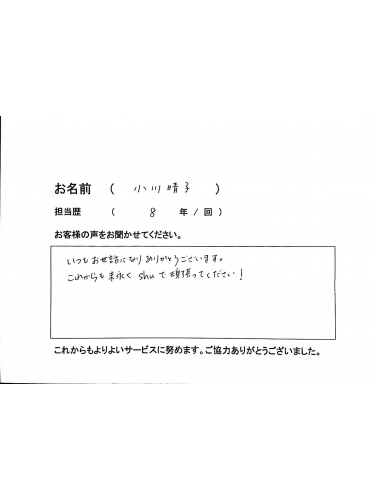 お名前 ( 小川晴子 )
担当歴 ( 8 年/回)
お客様の声をお聞かせてください。
いつもお世話になりありがとうございます。
これからも末永く shu で頑張ってください!
これからもよりよいサービスに努めます。ご協力ありがとうございました。